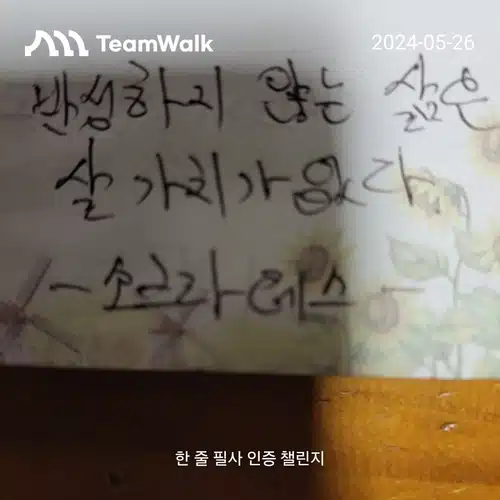 TeamWalk
2024-05-26
반성하지 않는 삶은
살 가치가 없다.
- 소크라테스 -
한 줄 필사 인증 챌린지